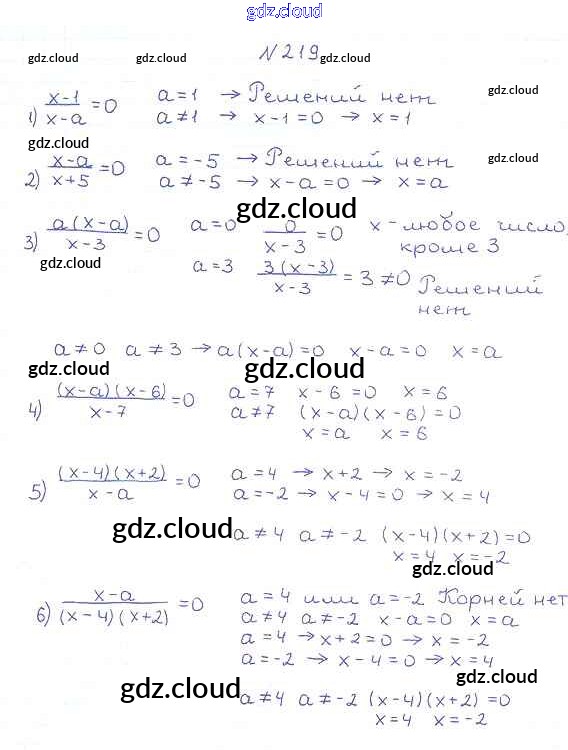 gdz.cloud
N 219
gdz.cloud gdz.cloud gdz.cloud
1) (x-1)/(x-a) = 0 a = 1 → Решений нет
a ≠ 1 → x-1 = 0 → x = 1
gdz.cloud
2) (x-a)/(x+5) = 0 a = -5 → Решений нет gdz.cloud
a ≠ -5 → x-a = 0 → x = a
gdz.cloud
3) a(x-a)/(x-3) = 0 a = 0 0/(x-3) = 0 x - любое число,
кроме 3
gdz.cloud
a = 3 3(x-3)/(x-3) = 3 ≠ 0 Решений
нет
a ≠ 0 a ≠ 3 → a(x-a) = 0 x-a = 0 x = a
gdz.cloud gdz.cloud gdz.cloud
4) (x-a)(x-6)/(x-7) = 0 a = 7 x-6 = 0 x = 6
a ≠ 7 (x-a)(x-6) = 0
x = a x = 6
5) (x-4)(x+2)/(x-a) = 0 a = 4 → x+2 → x = -2
a = -2 → x-4 = 0 → x = 4
gdz.cloud
a ≠ 4 a ≠ -2 (x-4)(x+2) = 0
x = 4 x = -2
gdz.cloud
6) (x-a)/((x-4)(x+2)) = 0 a = 4 или a = -2 Корней нет
a ≠ 4 a ≠ -2 x-a = 0 x = a
a = 4 → x+2 = 0 → x = -2
a = -2 → x-4 = 0 → x = 4
gdz.cloud gdz.cloud
a ≠ 4 a ≠ -2 (x-4)(x+2) = 0
x = 4 x = -2